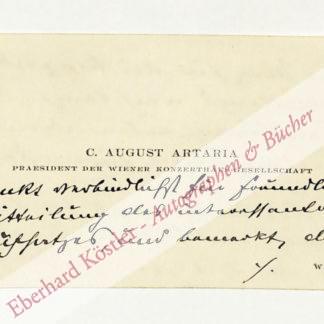 C. AUGUST ARTARIA
PRAESIDENT DER WIENER KONZERTHAUSGESELLSCHAFT
dankt verbindlichst für freundl
itteilung des interessanten
ufsatzes und bemerkt, d
W
Eberhard Köstler - Autographen & Bücher